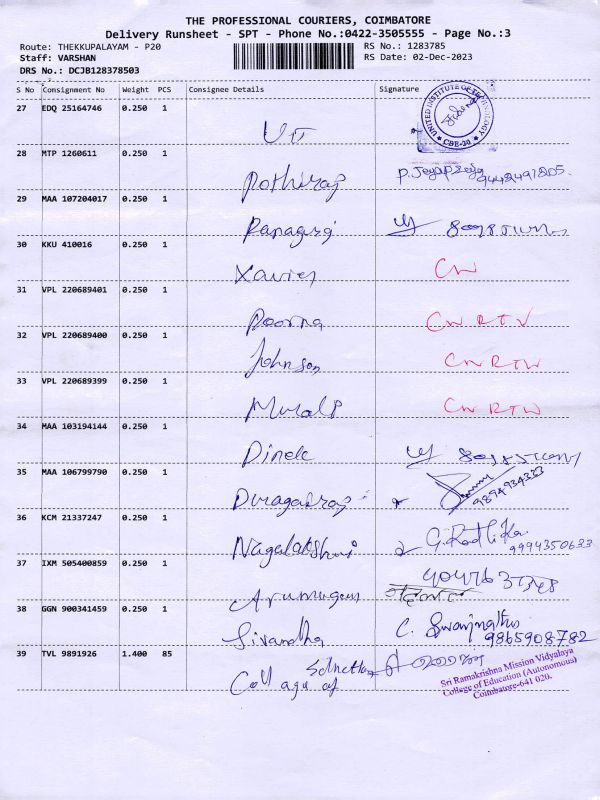 THE PROFESSIONAL COURIERS, COIMBATORE
Delivery Runsheet - SPT - Phone No.:0422-3505555 - Page No.:3
Route: THEKKUPALAYAM - P20
RS No.: 1283785
Staff: VARSHAN
RS Date: 02-Dec-2023
DRS No.: DCJB128378503
S No Consignment No Weight PCS Consignee Details Signature
27 EDQ 25164746 0.250 1
UNITED INSTITUTE OF TECHNOLOGY
CBE-20
UIT
28 MTP 1260611 0.250 1
Pothiraj
9442491805.
29 MAA 107204017 0.250 1
30 KKU 410016 0.250 1
Xavier
CW
31 VPL 220689401 0.250 1
Poorna
CW RTV
32 VPL 220689400 0.250 1
Johnson
CW RTW
33 VPL 220689399 0.250 1
Murali
CW RTW
34 MAA 103194144 0.250 1
35 MAA 106799790 0.250 1
Duragairaj
9894934323
36 KCM 21337247 0.250 1
G. Radhika
9994350633
37 IXM 505400859 0.250 1
Arumugam
38 GGN 900341459 0.250 1
9865908782
39 TVL 9891926 1.400 85
College of
Sri Ramakrishna Mission Vidyalaya
College of Education (Autonomous)
Coimbatore-641 020.